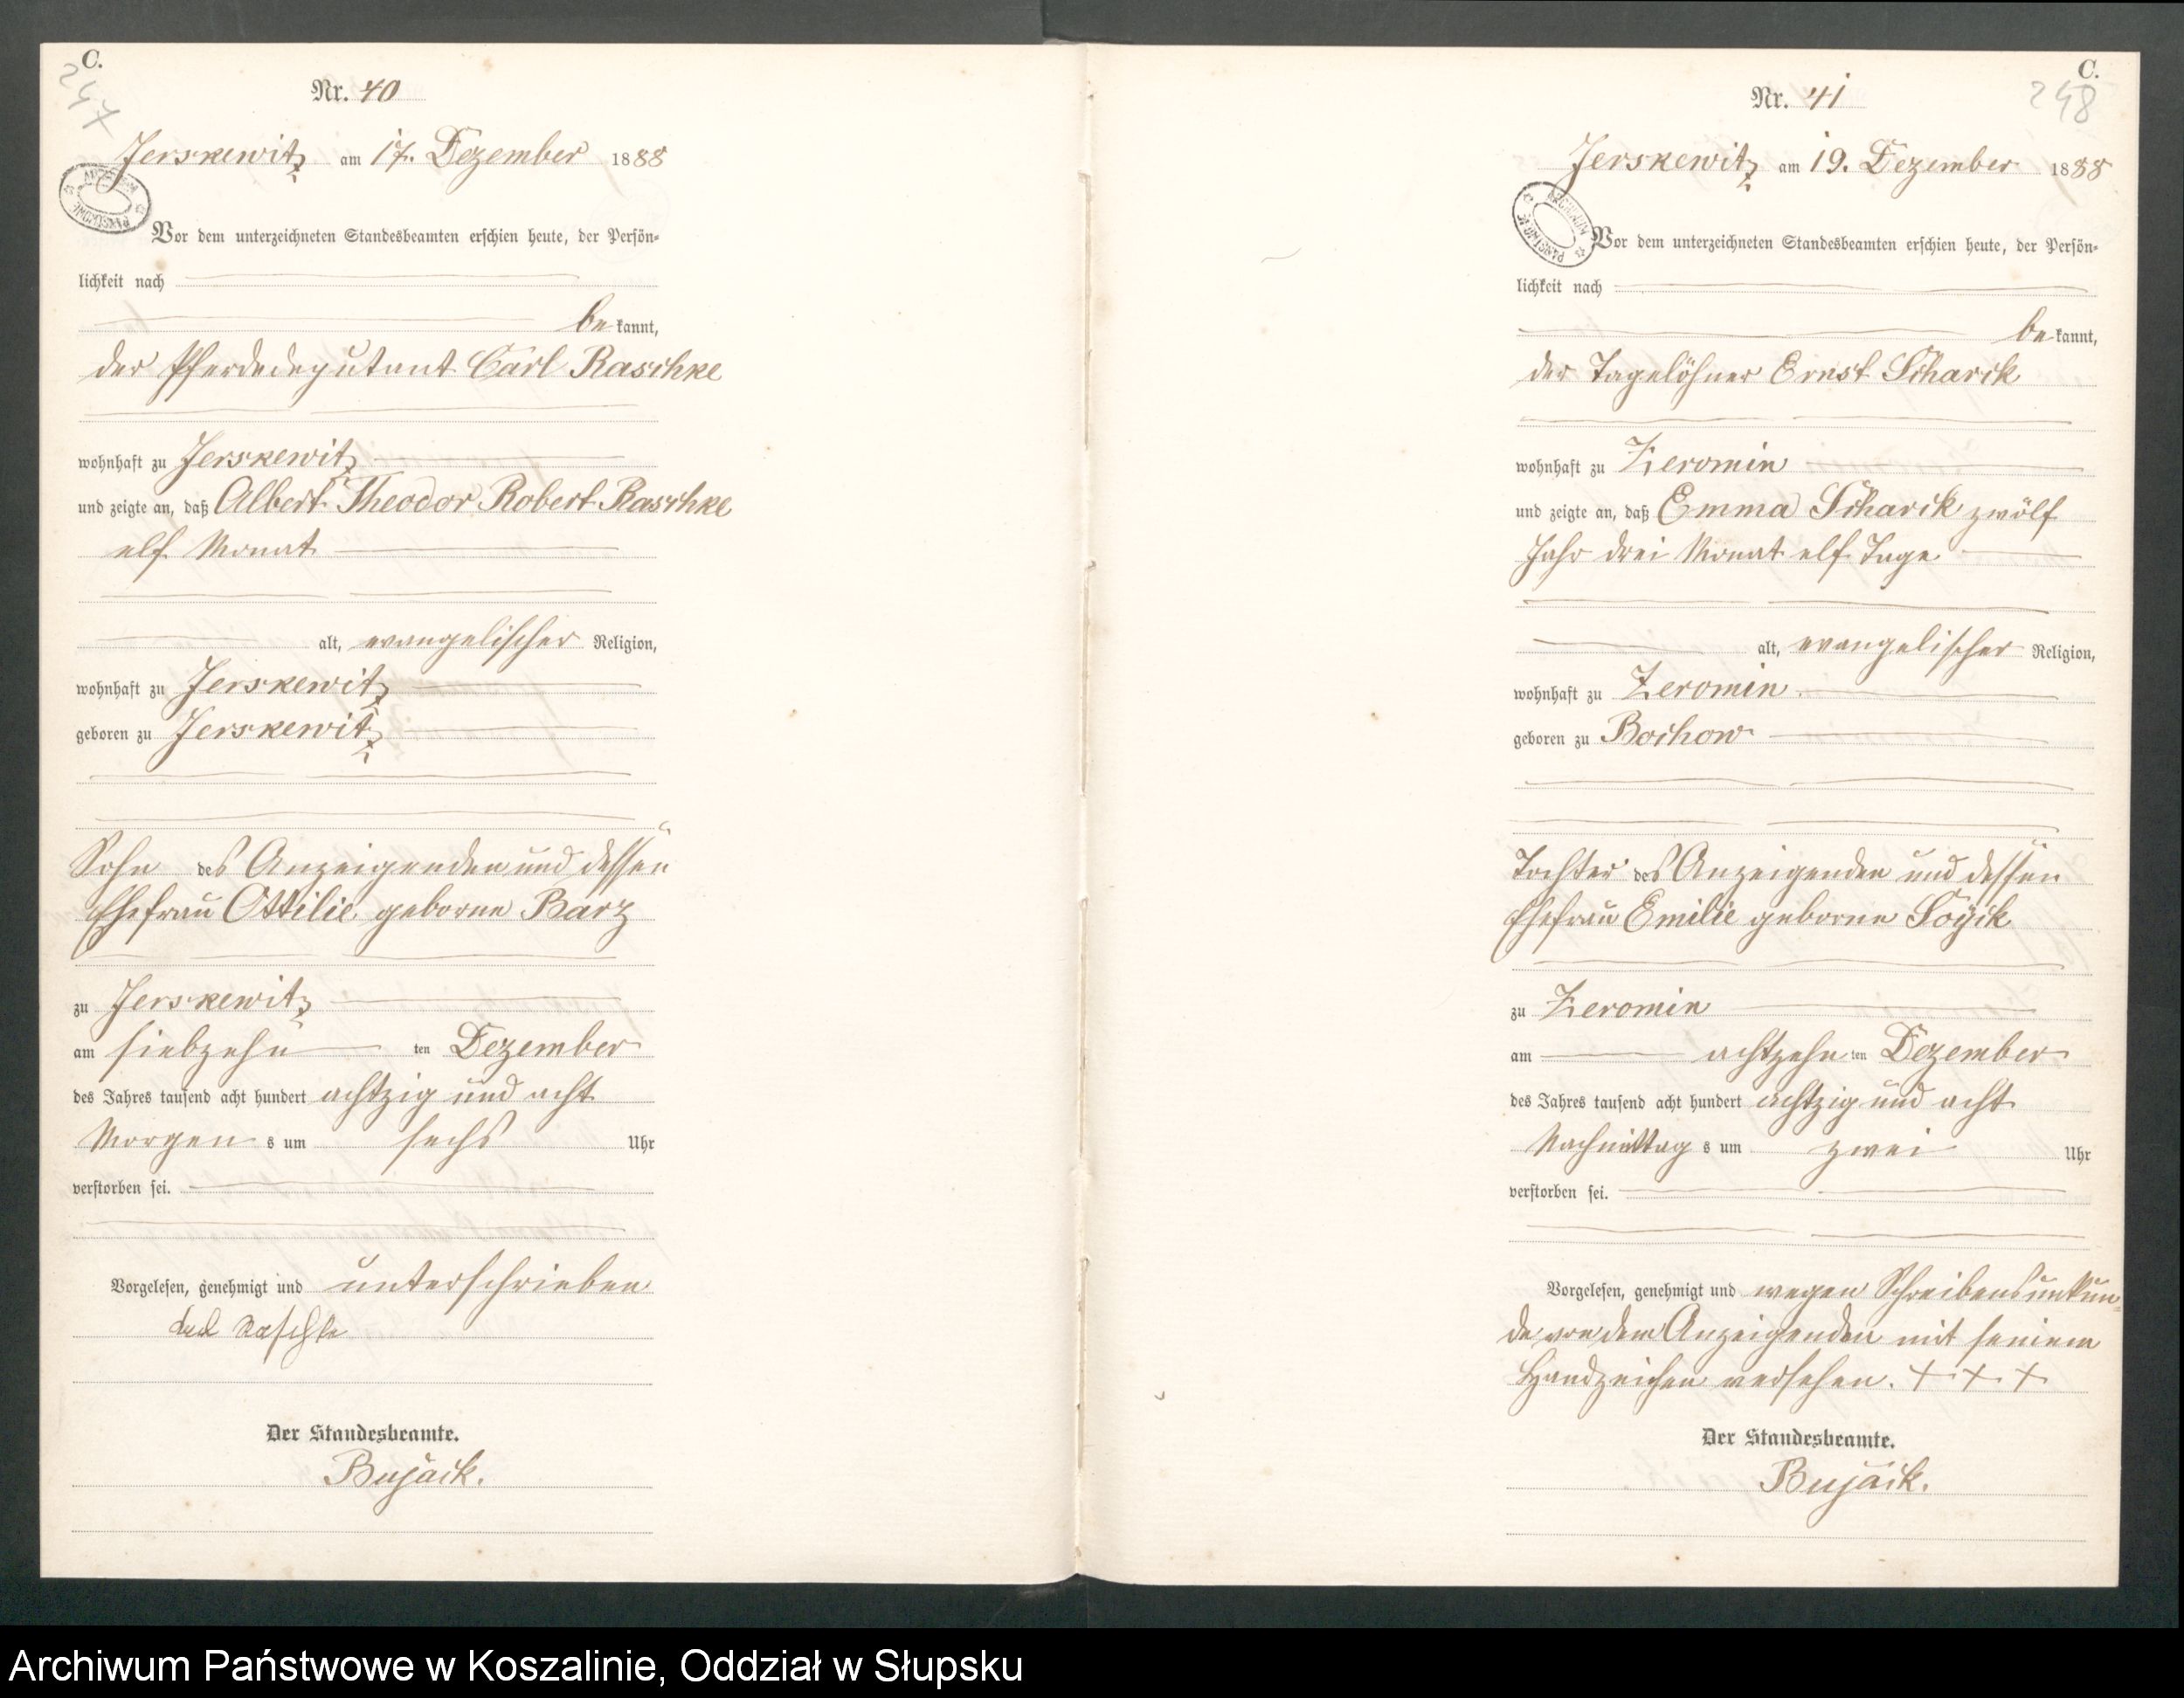 C.
247
Nr. 40
Jerskewitz am 17. Dezember 1888
Vor dem unterzeichneten Standesbeamten erschien heute, der Persön-
lichkeit nach
bekannt,
der Pferdedeputant Carl Raschke
wohnhaft zu Jerskewitz
und zeigte an, daß Albert Theodor Robert Raschke
elf Monat
alt, evangelischer Religion,
wohnhaft zu Jerskewitz
geboren zu Jerskewitz
Sohn des Anzeigenden und dessen
Ehefrau Ottilie geborne Barz
zu Jerskewitz
am siebzehnten Dezember
des Jahres tausend acht hundert achtzig und acht
Morgens um sechs Uhr
verstorben sei.
Vorgelesen, genehmigt und unterschrieben
Carl Raschke
Der Standesbeamte.
Bujack.
C.
248
Nr. 41
Jerskewitz am 19. Dezember 1888
Vor dem unterzeichneten Standesbeamten erschien heute, der Persön-
lichkeit nach
bekannt,
der Tagelöhner Ernst Scharck
wohnhaft zu Zeromin
und zeigte an, daß Emma Scharck zwölf
Jahr drei Monat elf Tage
alt, evangelischer Religion,
wohnhaft zu Zeromin
geboren zu Bochow
Tochter des Anzeigenden und dessen
Ehefrau Emilie geborne
zu Zeromin
am achtzehnten Dezember
des Jahres tausend acht hundert achtzig und acht
Nachmittags um zwei Uhr
verstorben sei.
Vorgelesen, genehmigt und wegen Schreibensunkun-
de von dem Anzeigenden mit seinem
Handzeichen versehen. + + +
Der Standesbeamte.
Bujack.
Archiwum Państwowe w Koszalinie, Oddział w Słupsku